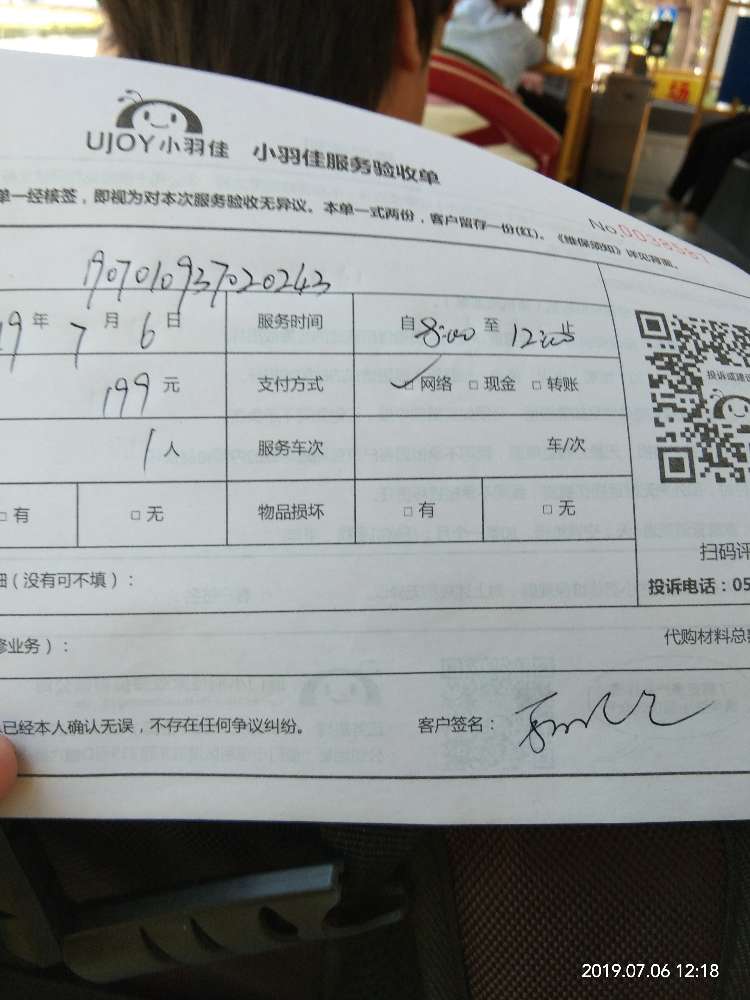 UJOY小羽佳 小羽佳服务验收单
单一经核签，即视为对本次服务验收无异议。本单一式两份，客户留存一份(红)。《维保须知》详见背面。
No.0038581
1907010937020243
19年7月6日 服务时间 自8:00至12:00止
199元 支付方式 ✓□网络 □现金 □转账
1人 服务车次 车/次
□有 □无 物品损坏 □有 □无
投诉或建议
扫码评
细（没有可不填）：
投诉电话：05
修业务）：
代购材料总额
已经本人确认无误，不存在任何争议纠纷。 客户签名：
2019.07.06 12:18